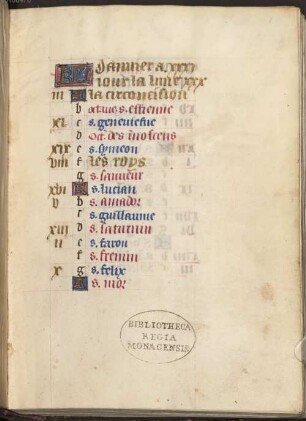 KL Janvier a xxxi
iour la lune xxx
iii A la circoncision
b octave s. estienne
xi c s. geneviefve
d Oct. des inocens
xix e s. symeon
viii f les roys
g s. laurent
xvi A s. lucian
v b s. amador
c s. guillaume
xiii d s. saturnin
ii e s. faron
f s. fremin
x g s. felix
A s. mor
BIBLIOTHECA
REGIA
MONACENSIS